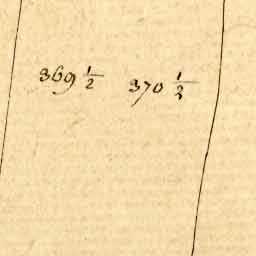 369 1/2 370 1/2